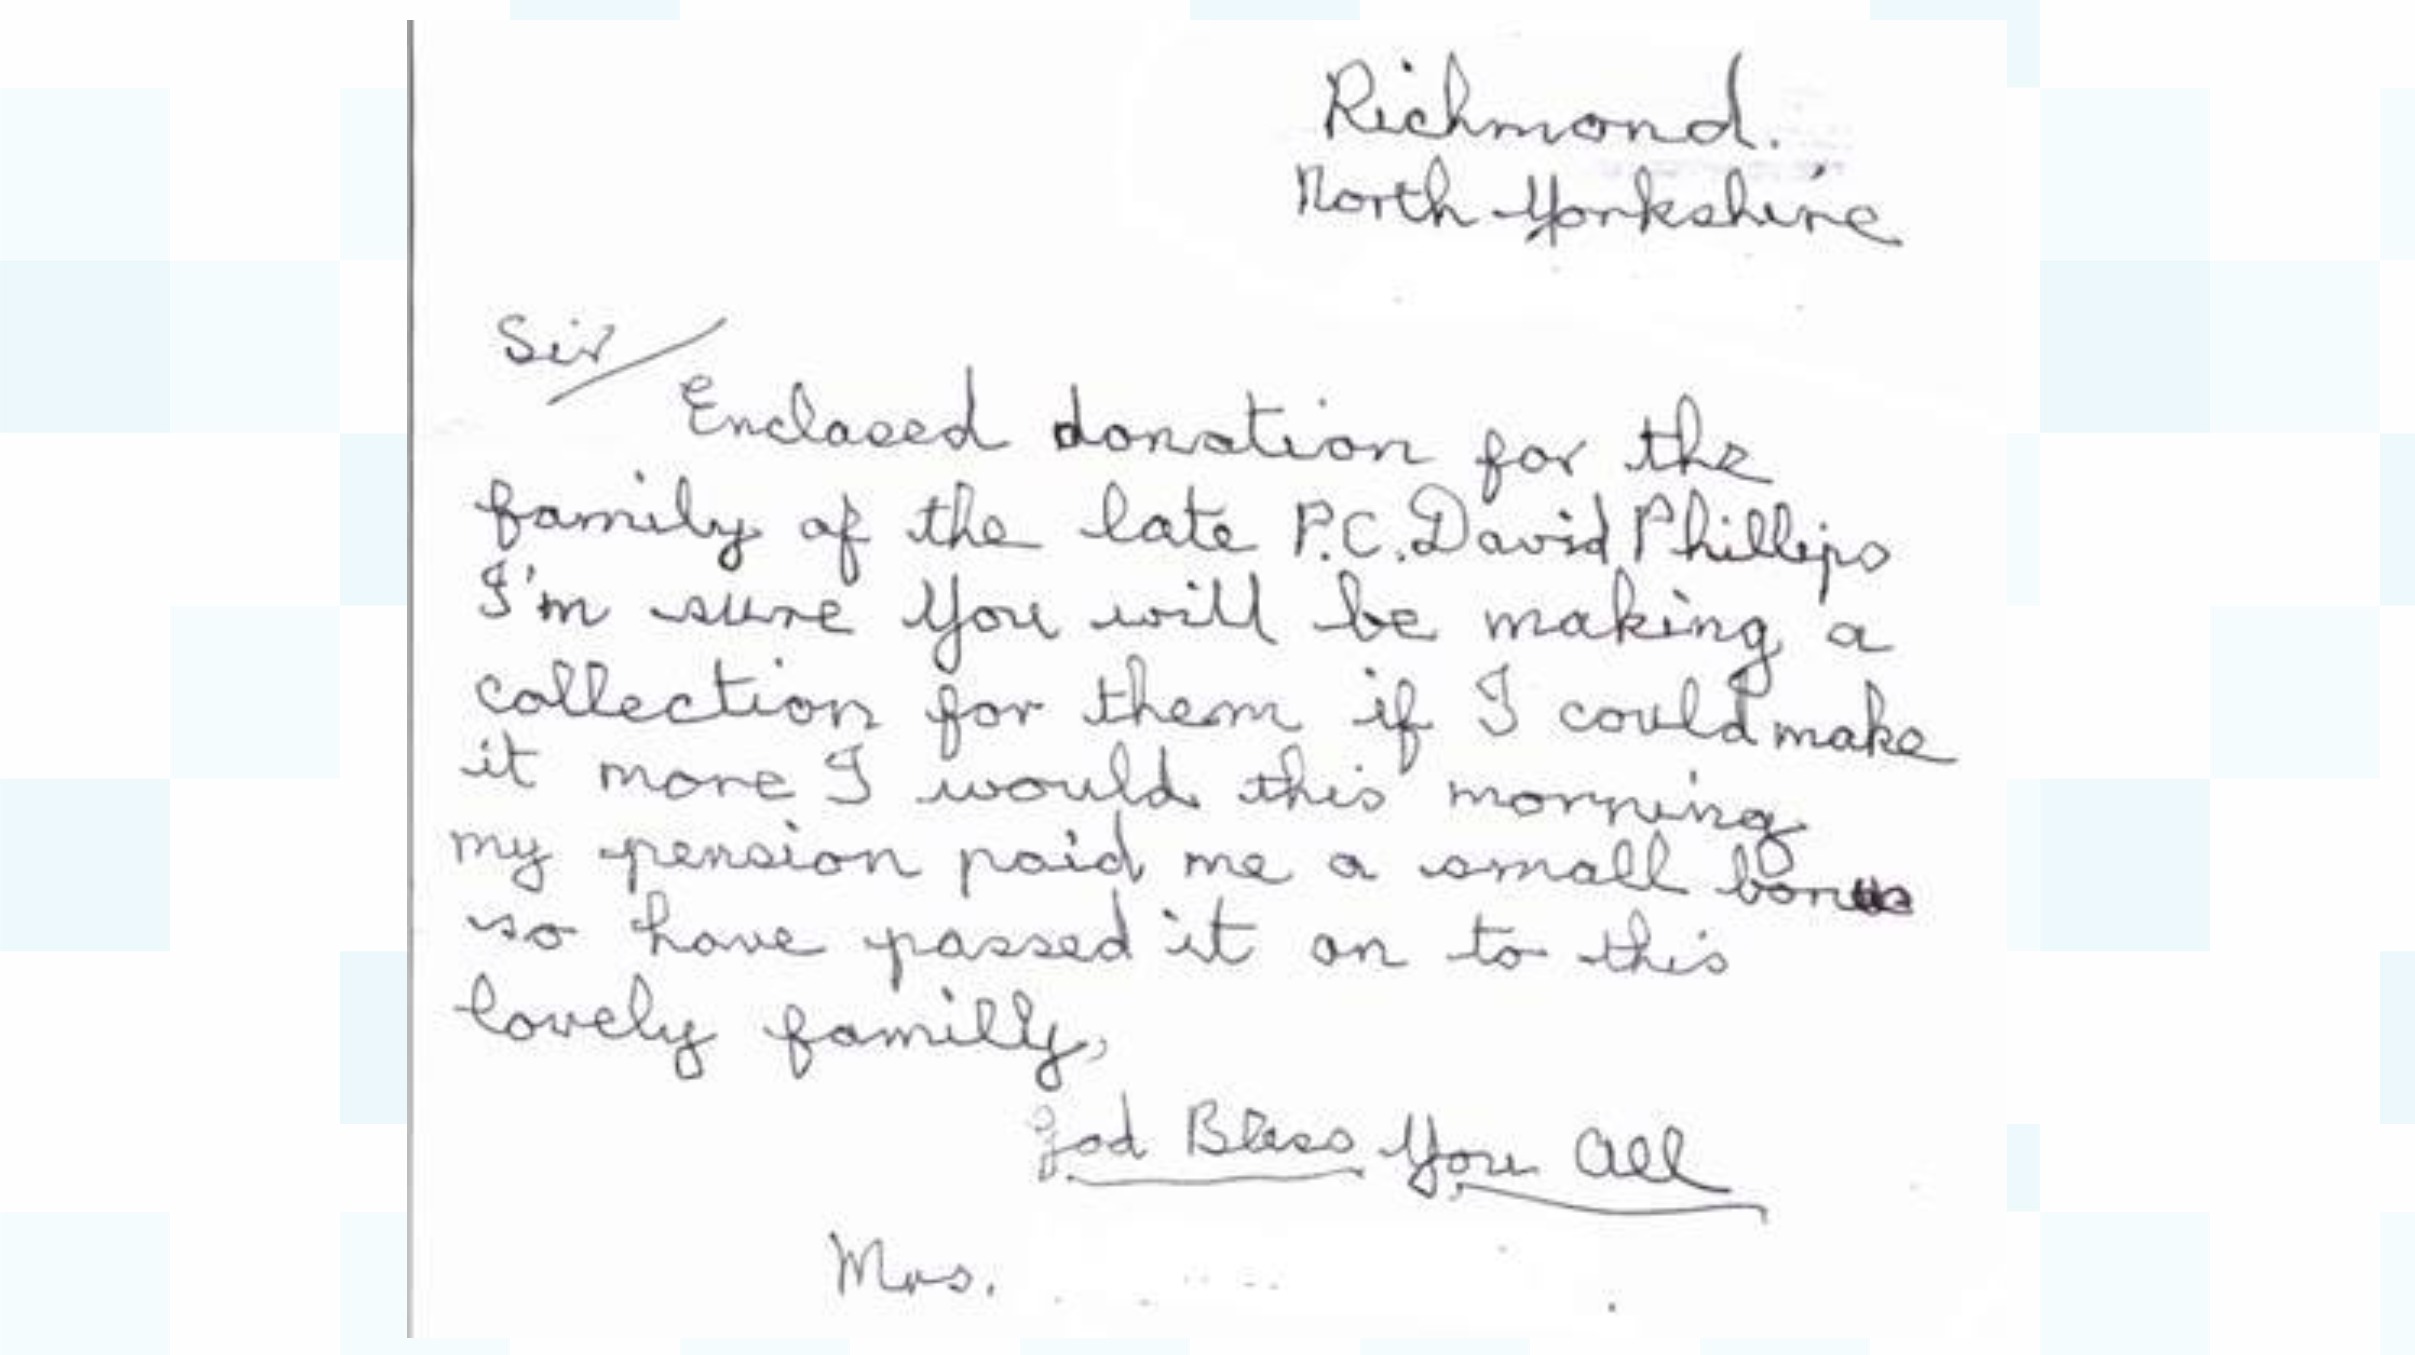 Richmond.
North Yorkshire
Sir/
Enclosed donation for the
family of the late P.C. David Phillips
I'm sure you will be making a
collection for them if I could make
it more I would this morning
my pension paid me a small bonus
so have passed it on to this
lovely familly,
God Bless You All
Mrs.